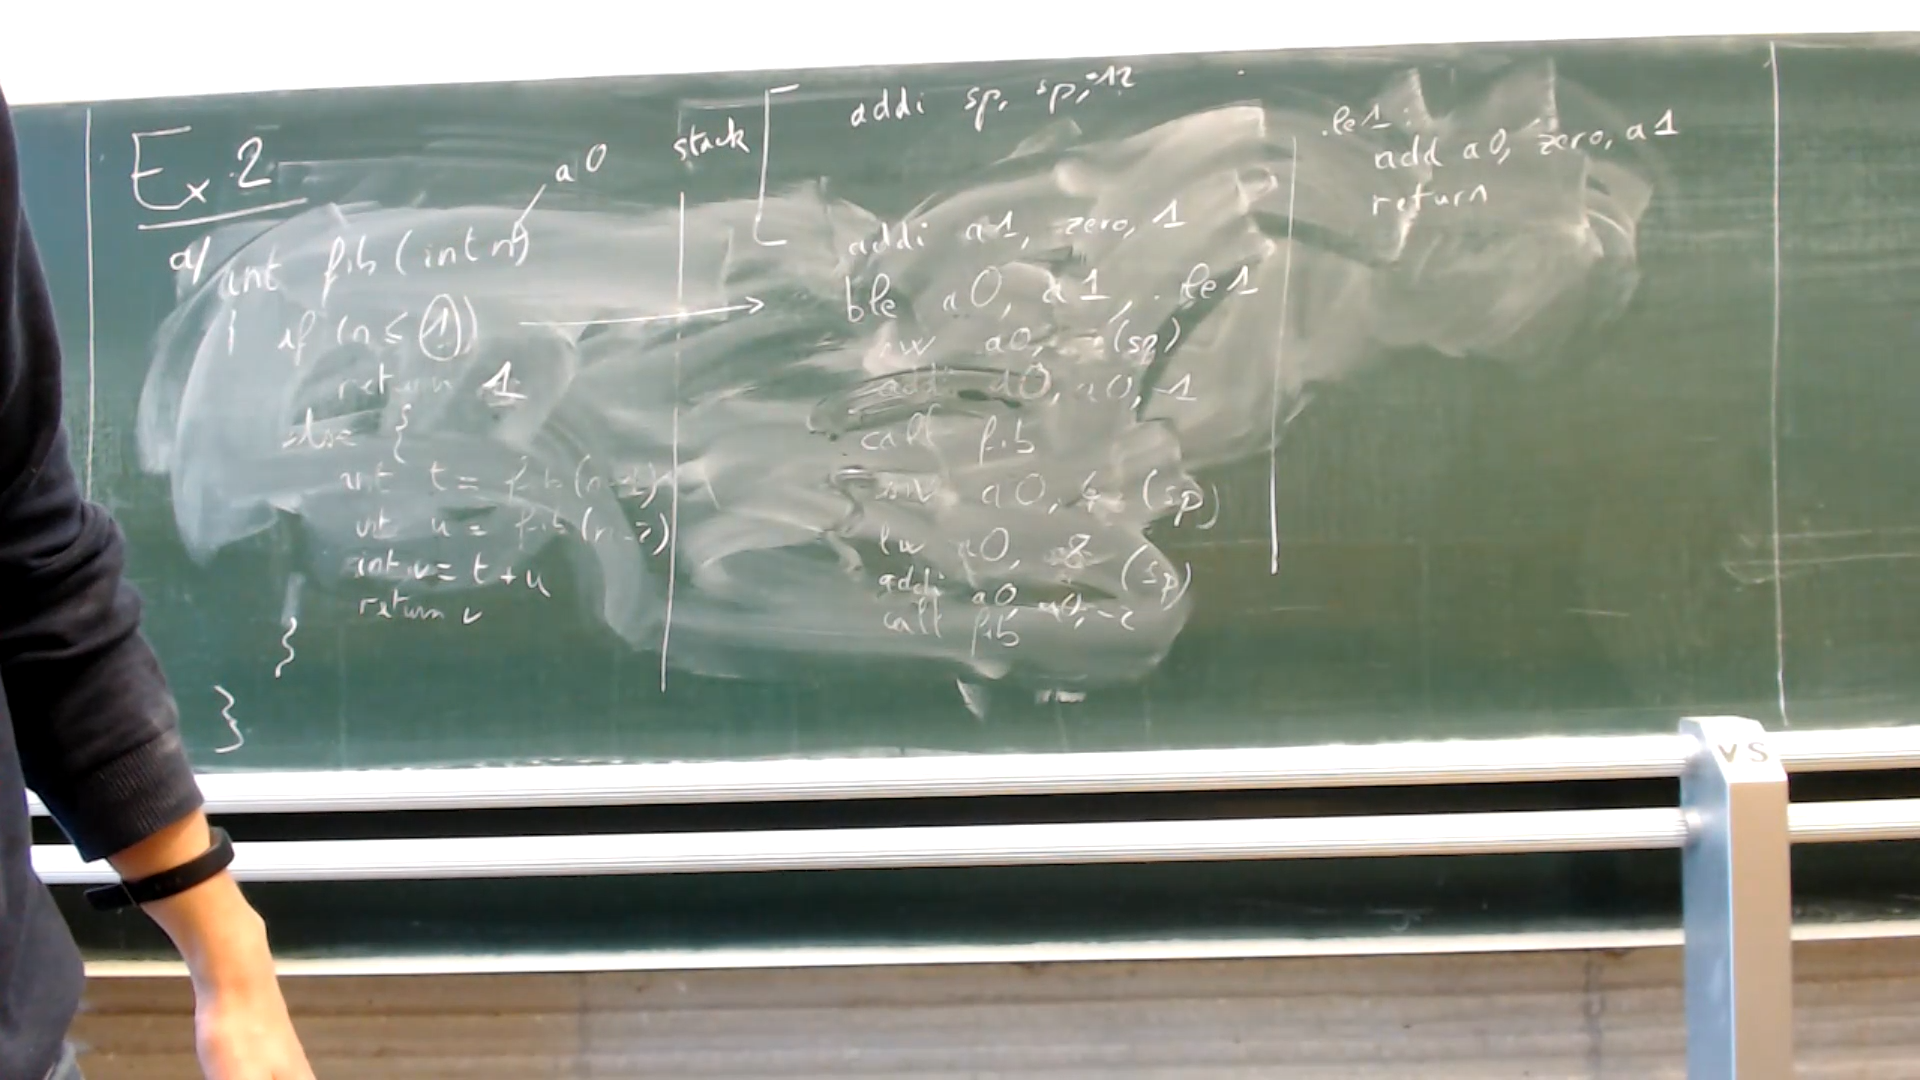 Ex 2
a0
a/ int fib (int n)
{ if (n ≤ 1)
return 1
else {
int t = fib(n-1)
int u = fib(n-2)
int v = t + u
return v
}
}
stack
addi sp, sp, -12
addi a1, zero, 1
ble a0, a1, .le1
sw a0, (sp)
addi a0, a0, -1
call fib
sw a0, (sp)
lw a0, 8 (sp)
addi a0, a0, -2
call fib
.le1:
add a0, zero, a1
return
VS